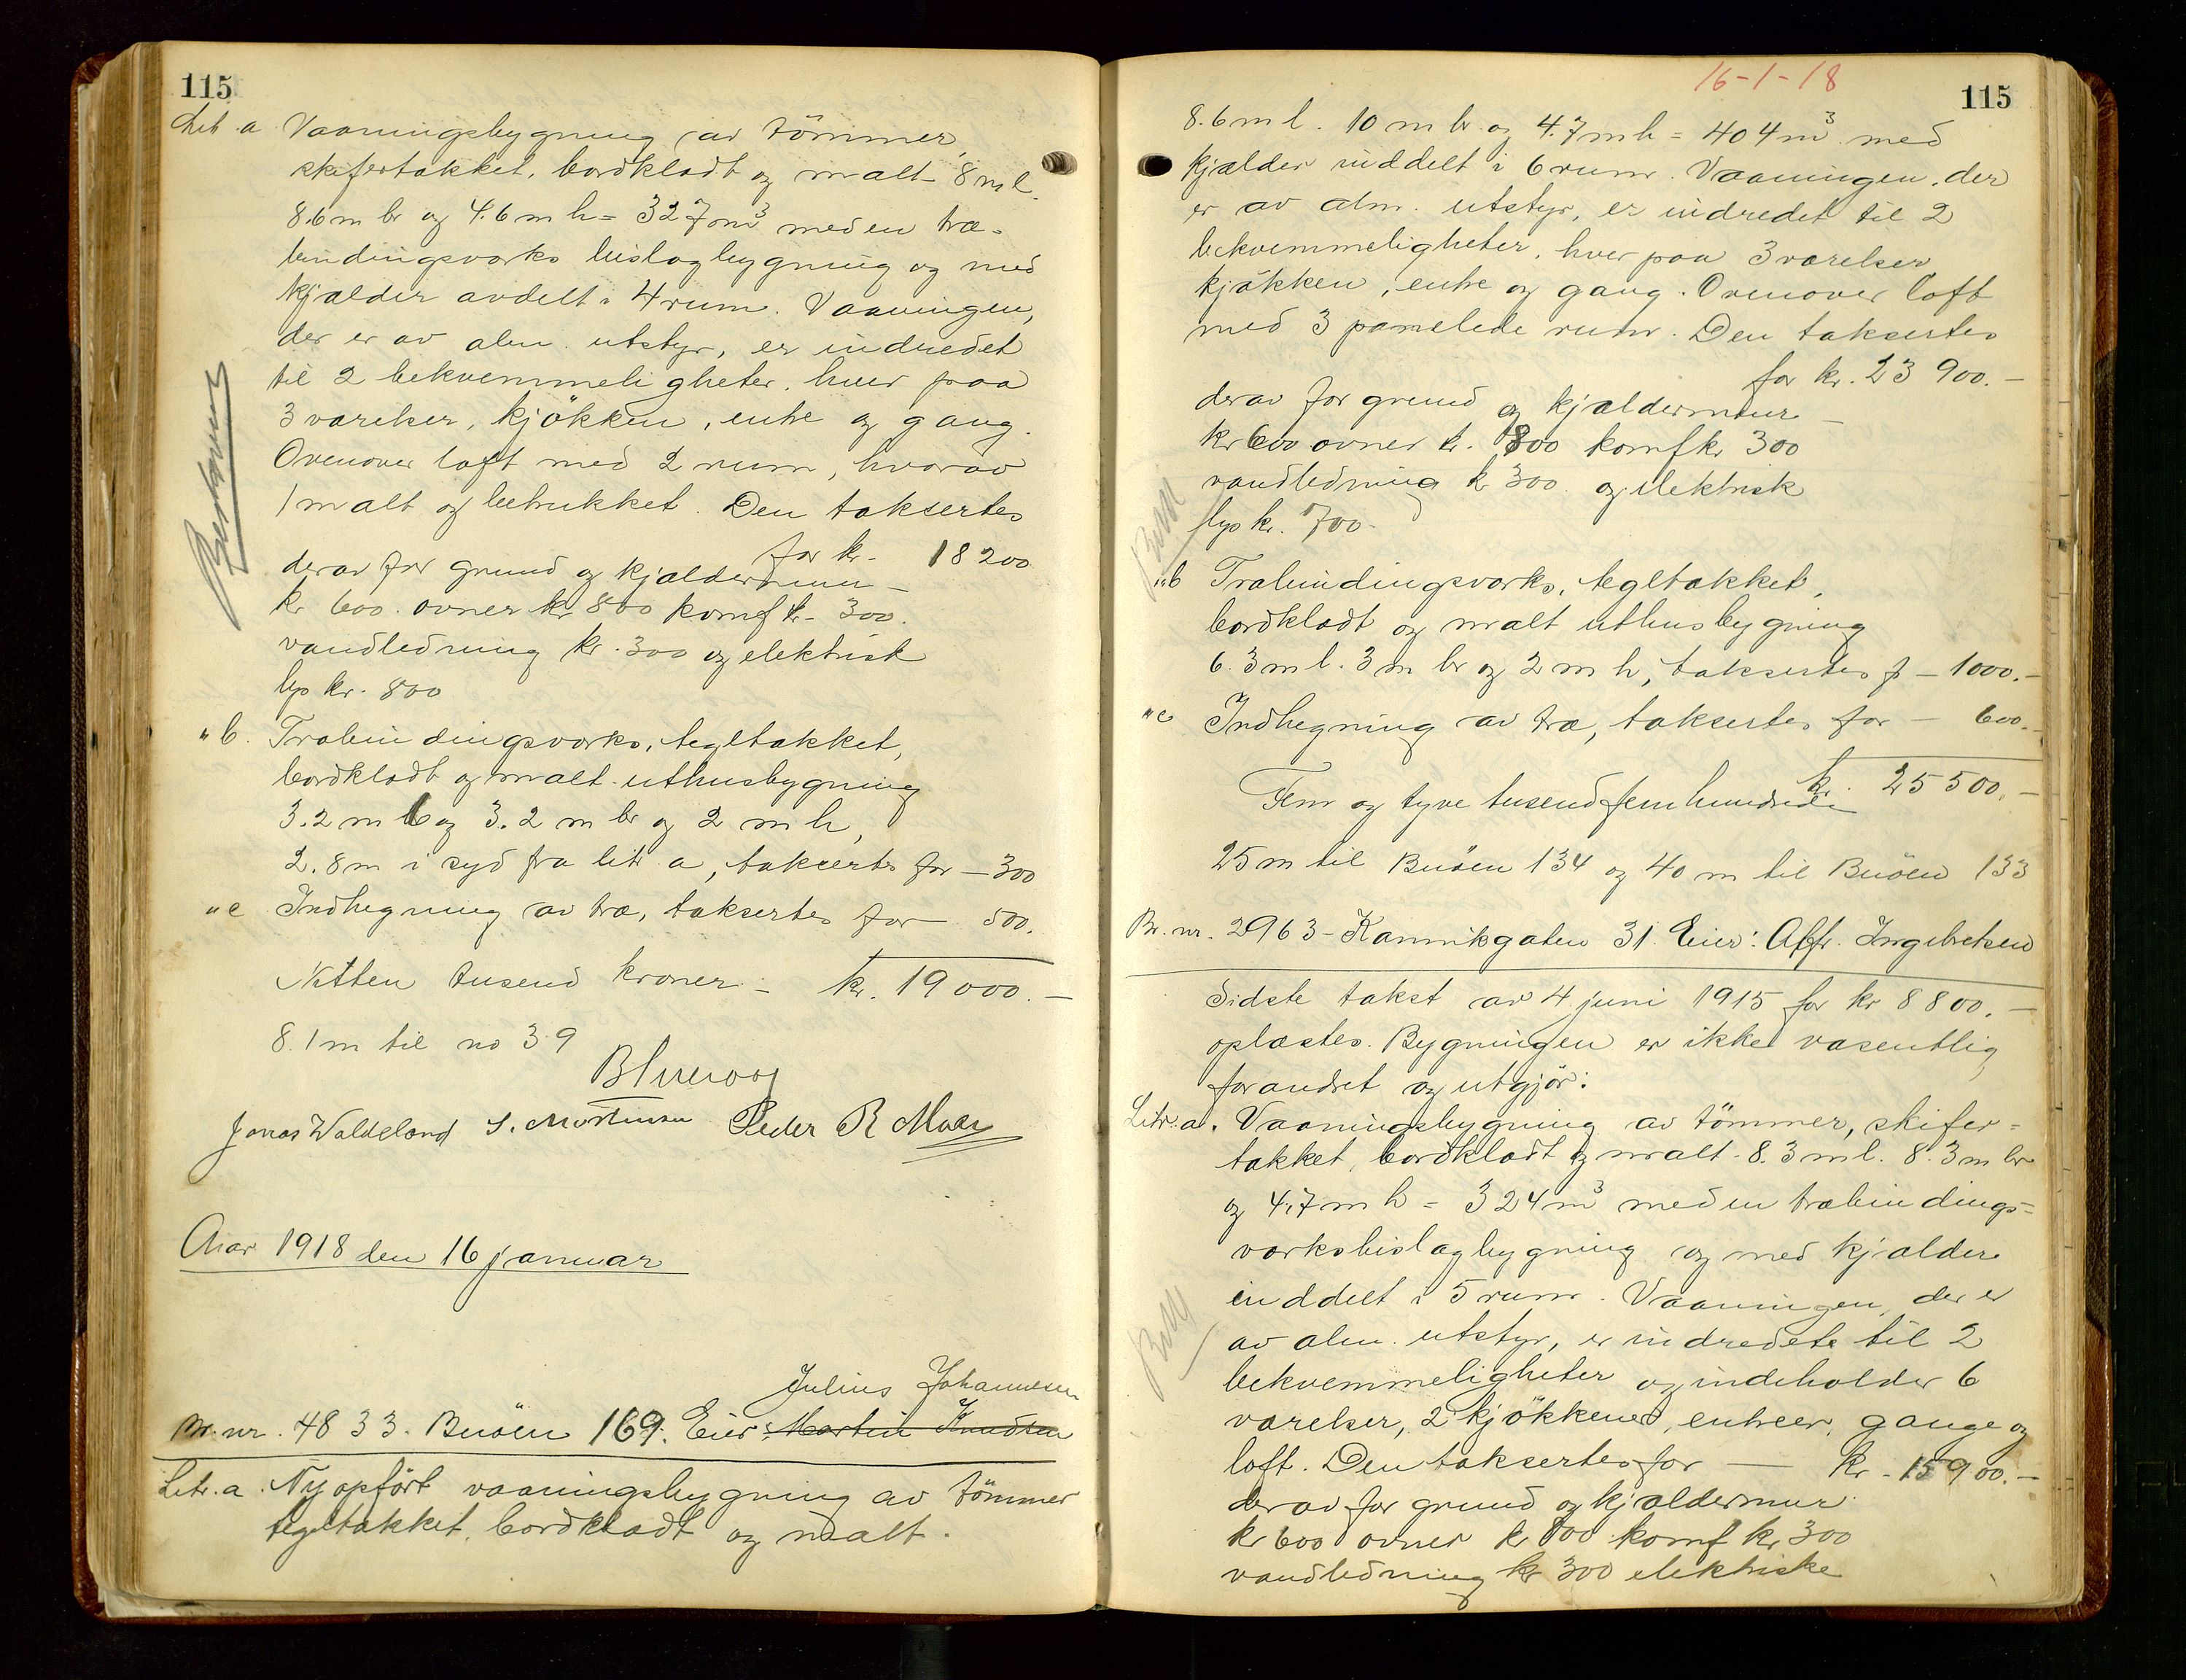 115
Lit. a Vaaningsbygning av tömmer,
skifertækket, bordklædt og malt 8 m l.
8.6 m br og 4.6 m h = 327 m³ med en træ-
bindingsverks bislagbygning og med
kjælder avdelt i 4 rum. Vaaningen,
der er av alm. utstyr, er indredet
til 2 bekvemmeligheter, hver paa
3 værelser, kjökken, entre og gang.
Ovenover loft med 2 rum, hvorav
1 malt og betrukket. Den taksertes
for kr. 18 200
derav for grund og kjældermur
kr 600. ovner kr 800 komf kr. 300.
vandledning kr. 300 og elektrisk
lys kr. 800
" b. Træbindingsverks, tegltækket,
bordklædt og malt uthusbygning
3.2 m l og 3.2 m br og 2 m h,
2.8 m i syd fra lit a, taksertes for — 300
" c Indhegning av træ, taksertes for — 500.
Nitten tusend kroner — kr. 19 000.—
8.1 m til no 39
Jonas Waldeland S. Mortensen Peder R Moen
Aar 1918 den 16 januar
Julius Johannesen
Br. nr. 4833. Buöen 169. Eier: Martin Knudsen
Litr. a. Nyopfört vaaningsbygning av tömmer
tegltækket, bordklædt og malt.
16-1-18
115
8.6 m l. 10 m br og 4.7 m h = 404 m³ med
kjælder inddelt i 6 rum. Vaaningen, der
er av alm. utstyr, er indredet til 2
bekvemmeligheter, hver paa 3 værelser
kjökken, entre og gang. Ovenover loft
med 3 panelede rum. Den taksertes
for kr. 23 900.—
derav for grund og kjældermur —
kr 600 ovner kr. 800 komf kr 300
vandledning kr 300 og elektrisk
lys kr. 700.
" b Træbindingsverks, tegltækket,
bordklædt og malt uthusbygning
6.3 m l. 3 m br og 2 m h, taksertes f — 1000.—
" c Indhegning av træ, taksertes for — 600.—
kr. 25 500.—
Fem og tyve tusend fem hundrede
25 m til Buöen 134 og 40 m til Buöen 133
Br. nr. 2963 - Kannikgaten 31. Eier: Alfr. Ingebretsen
Sidste takst av 4 juni 1915 for kr 8800.—
oplæstes. Bygningen er ikke væsentlig
forandret og utgjör:
Litr. a. Vaaningsbygning av tömmer, skifer=
tækket, bordklædt og malt. 8.3 m l. 8.3 m br
og 4.7 m h = 324 m³ med en træbindings=
verksbislagbygning og med kjælder
inddelt i 5 rum. Vaaningen, der er
av alm. utstyr, er indredet til 2
bekvemmeligheter og indeholder 6
værelser, 2 kjökkener, entreer, gange og
loft. Den taksertes for — kr. 15 900.—
derav for grund og kjældermur
kr 600 ovner kr 800 komf kr 300
vandledning kr 300 elektriske